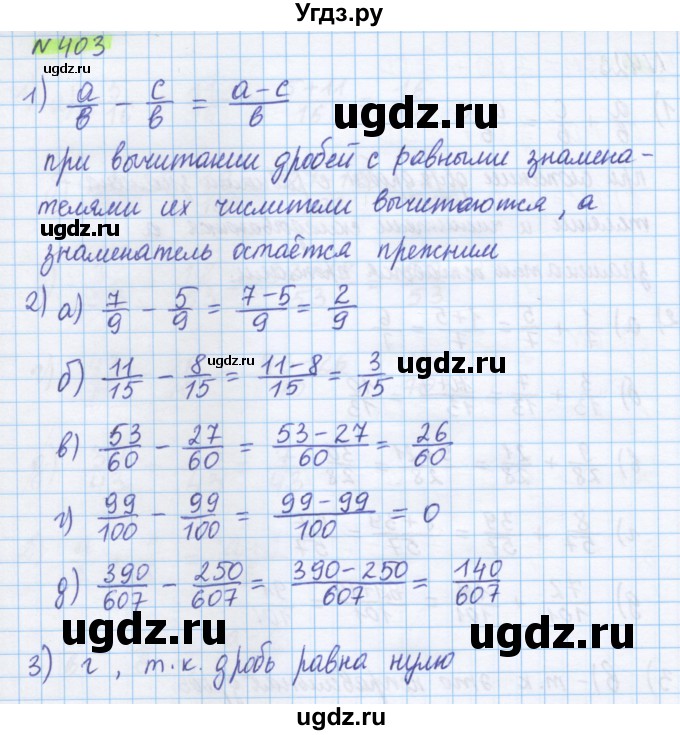 Угдз.ру
N 403
ugdz.ru
1) a/в − c/в = a−c/в
ugdz.ru
при вычитании дробей с равными знамена-
телями их числители вычитаются, а
ugdz.ru
знаменатель остаётся прежним
2) а) 7/9 − 5/9 = 7−5/9 = 2/9
ugdz.ru
б) 11/15 − 8/15 = 11−8/15 = 3/15
ugdz.ru
ugdz.ru
в) 53/60 − 27/60 = 53−27/60 = 26/60
г) 99/100 − 99/100 = 99−99/100 = 0
д) 390/607 − 250/607 = 390−250/607 = 140/607
ugdz.ru
ugdz.ru
3) г, т.к. дробь равна нулю
ugdz.ru